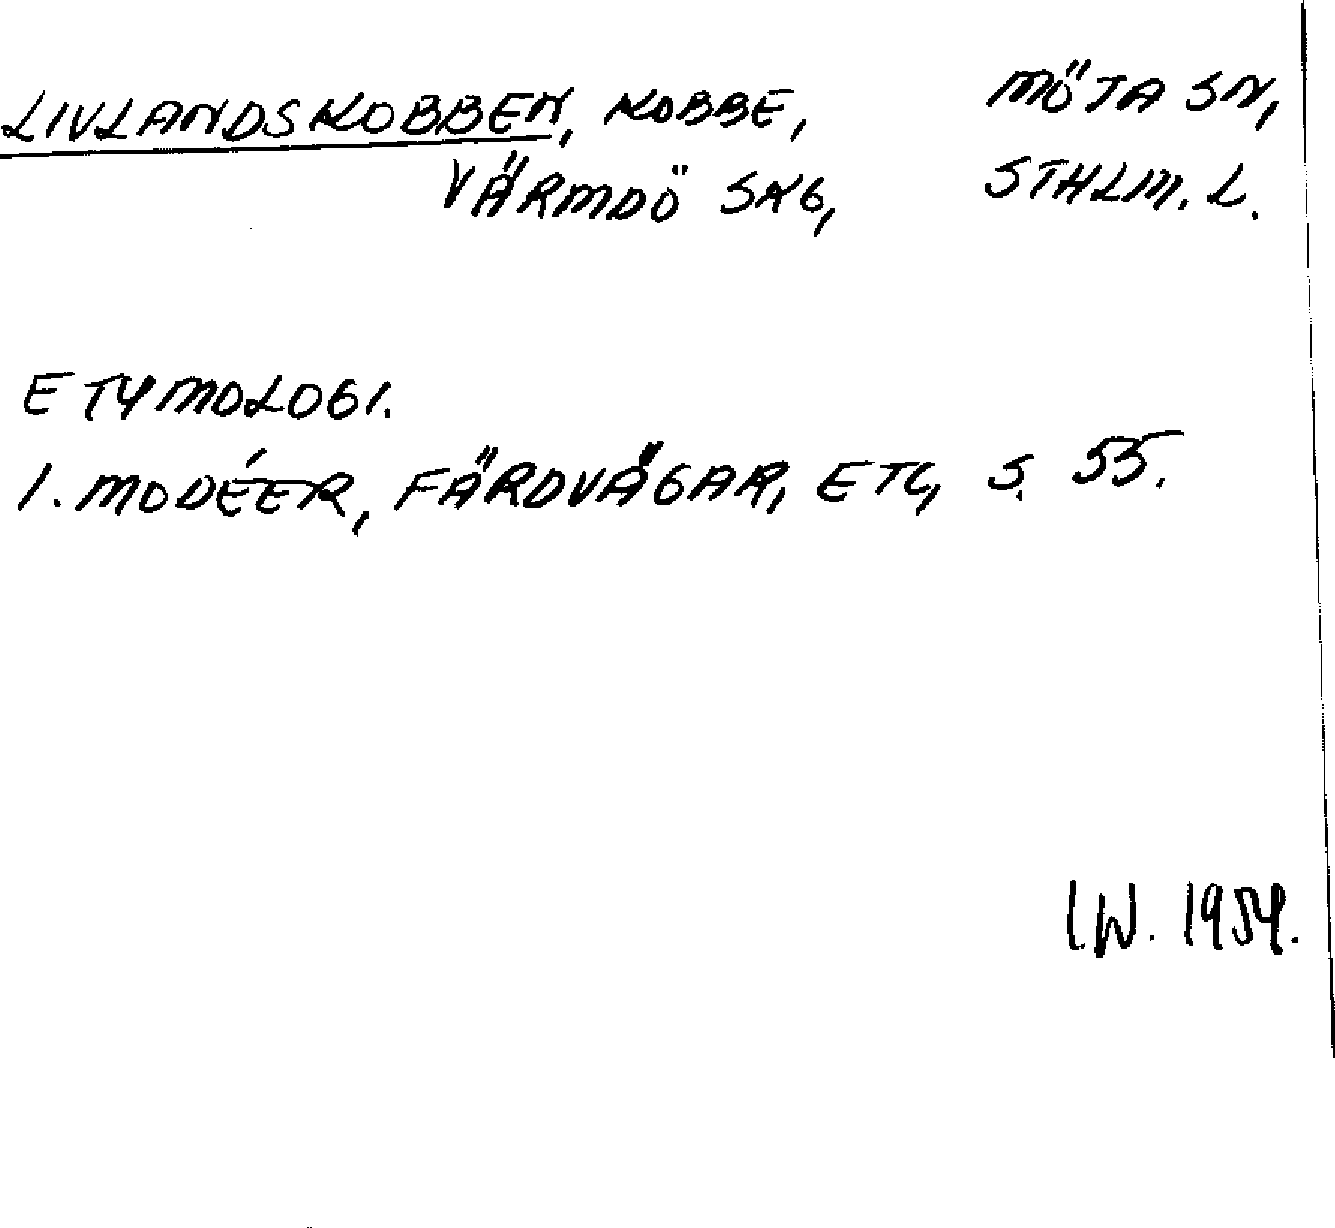 LIVLANDSKOBBEN, KOBBE, MÖTA SN,
VÄRMDÖ SKG, STHLM. L.
ETYMOLOGI.
I. MODÉER, FÄRDVÄGAR, ETC, S. 55.
I.W. 1954.